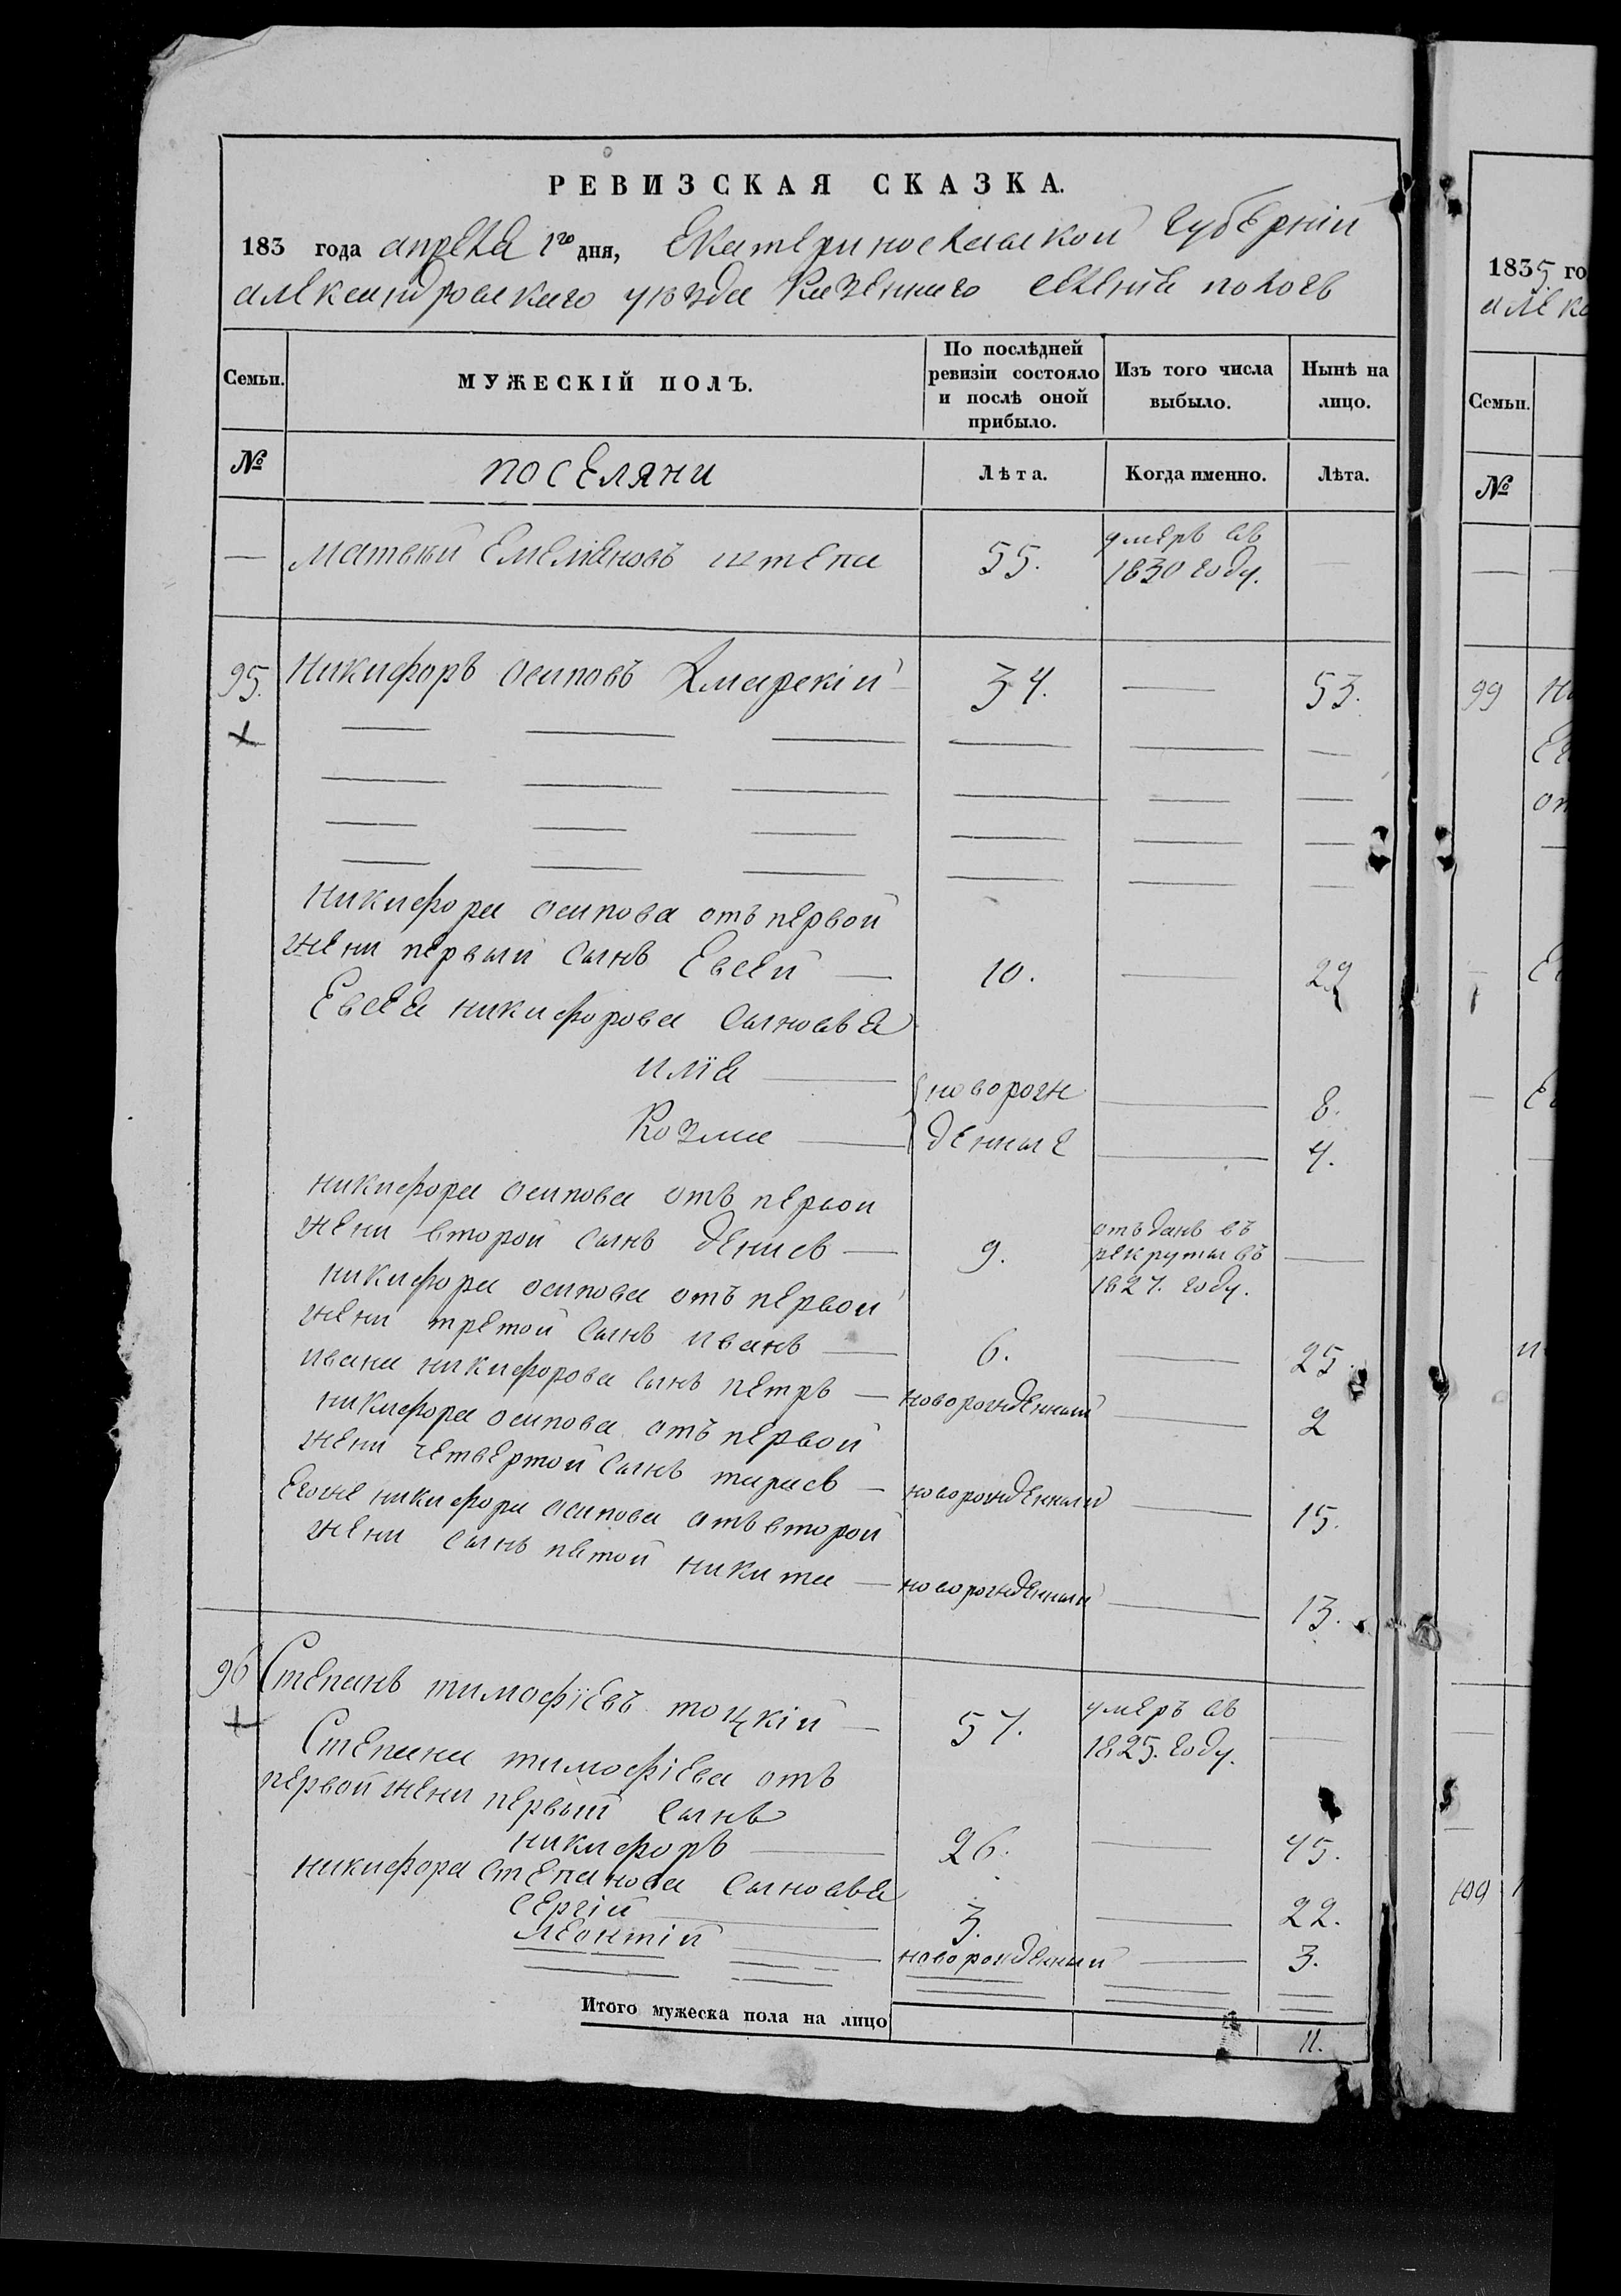 РЕВИЗСКАЯ СКАЗКА.
183 года апреля 1го дня, Екатеринославской губернiи
александровскаго уезда Казеннаго селения пологъ
Семьи. МУЖЕСКІЙ ПОЛЪ. По послѣдней ревизіи состояло и послѣ оной прибыло. Изъ того числа выбыло. Нынѣ на лицо.
№ поселяни Лѣта. Когда именно. Лѣта.
— матвѣй Емелiановъ 55. умеръ въ 1830 году. —
95. Никифоръ осиповъ Хмарскiй — 34. — 53.
никифора осипова отъ первой
жени первый сынъ Евсей — 10. — 29
Евсея никифорова сыновья
илiя — новорож — 8.
Козма — денные — 4.
никифора осипова отъ первой
жени второй сынъ денисъ — 9. отъданъ въ рекруты въ 1827. году. —
никифора осипова отъ первой
жени третой сынъ иванъ — 6. — 25.
ивана никифорова сынъ петръ — новорожденный — 2
никифора осипова отъ первой
жени четвертой сынъ тарасъ — новорожденный — 15.
Егоже никифора осипова отъ второй
жени сынъ пятой никита — новорожденный — 13.
96 Степанъ тимофiевъ тоцкiй — 57. умеръ въ 1825. году. —
Степана тимофiева отъ
первой жени первый сынъ
никифоръ — 26. — 45.
никифора степанова сыновья
сергiй — 3. — 22.
леонтiй — новорожденный — 3.
Итого мужеска пола на лицо 11.
1835 го
алекс
Семьи.
№
99
100